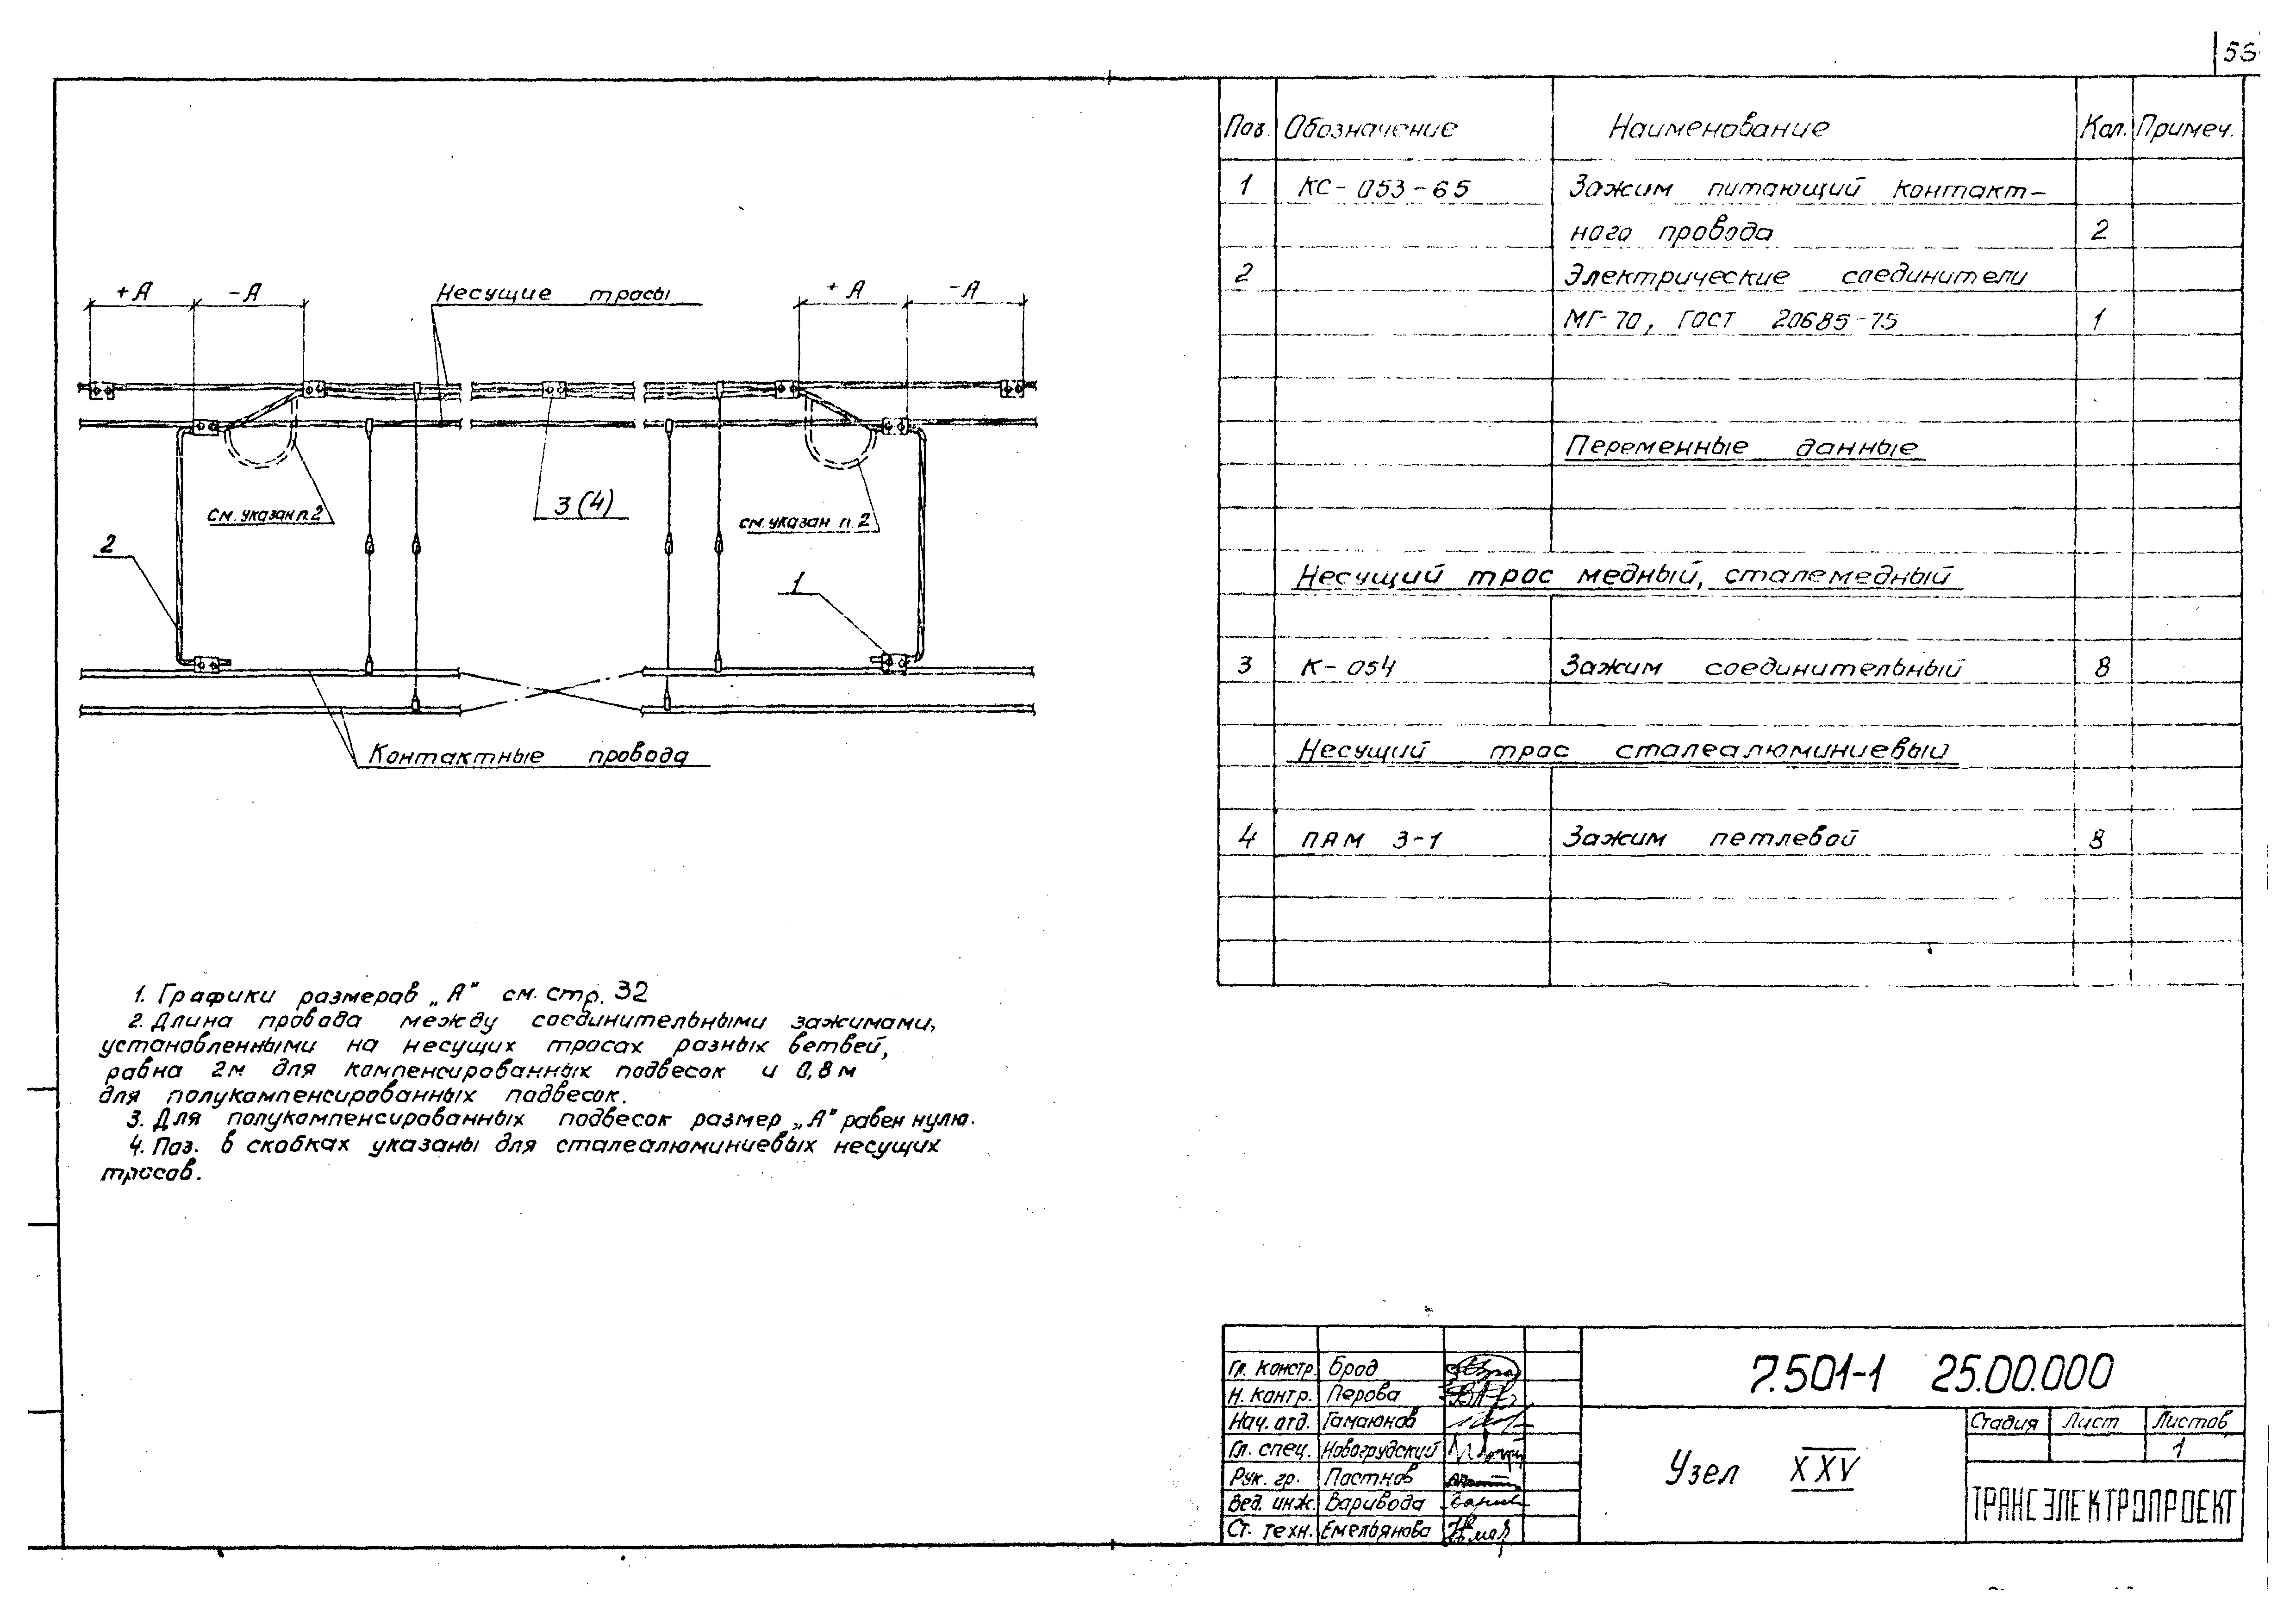 53
+А
-А
Несущие тросы
+А
-А
см. указан п. 2
3 (4)
см. указан п. 2
2
1
Контактные провода
1. Графики размеров „А" см. стр. 32
2. Длина провода между соединительными зажимами,
установленными на несущих тросах разных ветвей,
равна 2м для компенсированных подвесок и 0,8м
для полукомпенсированных подвесок.
3. Для полукомпенсированных подвесок размер „А" равен нулю.
4. Поз. в скобках указаны для сталеалюминиевых несущих
тросов.
Поз. Обозначение Наименование Кол. Примеч.
1 КС-053-65 Зажим питающий контакт-
ного провода 2
2 Электрические соединители
МГ-70, ГОСТ 20685-75 1
Переменные данные
Несущий трос медный, сталемедный
3 К-054 Зажим соединительный 8
Несущий трос сталеалюминиевый
4 ПАМ 3-1 Зажим петлевой 8
Гл. констр. Брод
Н. контр. Перова
Нач. отд. Гамаюнов
Гл. спец. Новогрудский
Рук. гр. Постнов
Вед. инж. Варивода
Ст. техн. Емельянова
7.501-1 25.00.000
Узел XXV
Стадия Лист Листов
1
ТРАНСЭЛЕКТРОПРОЕКТ